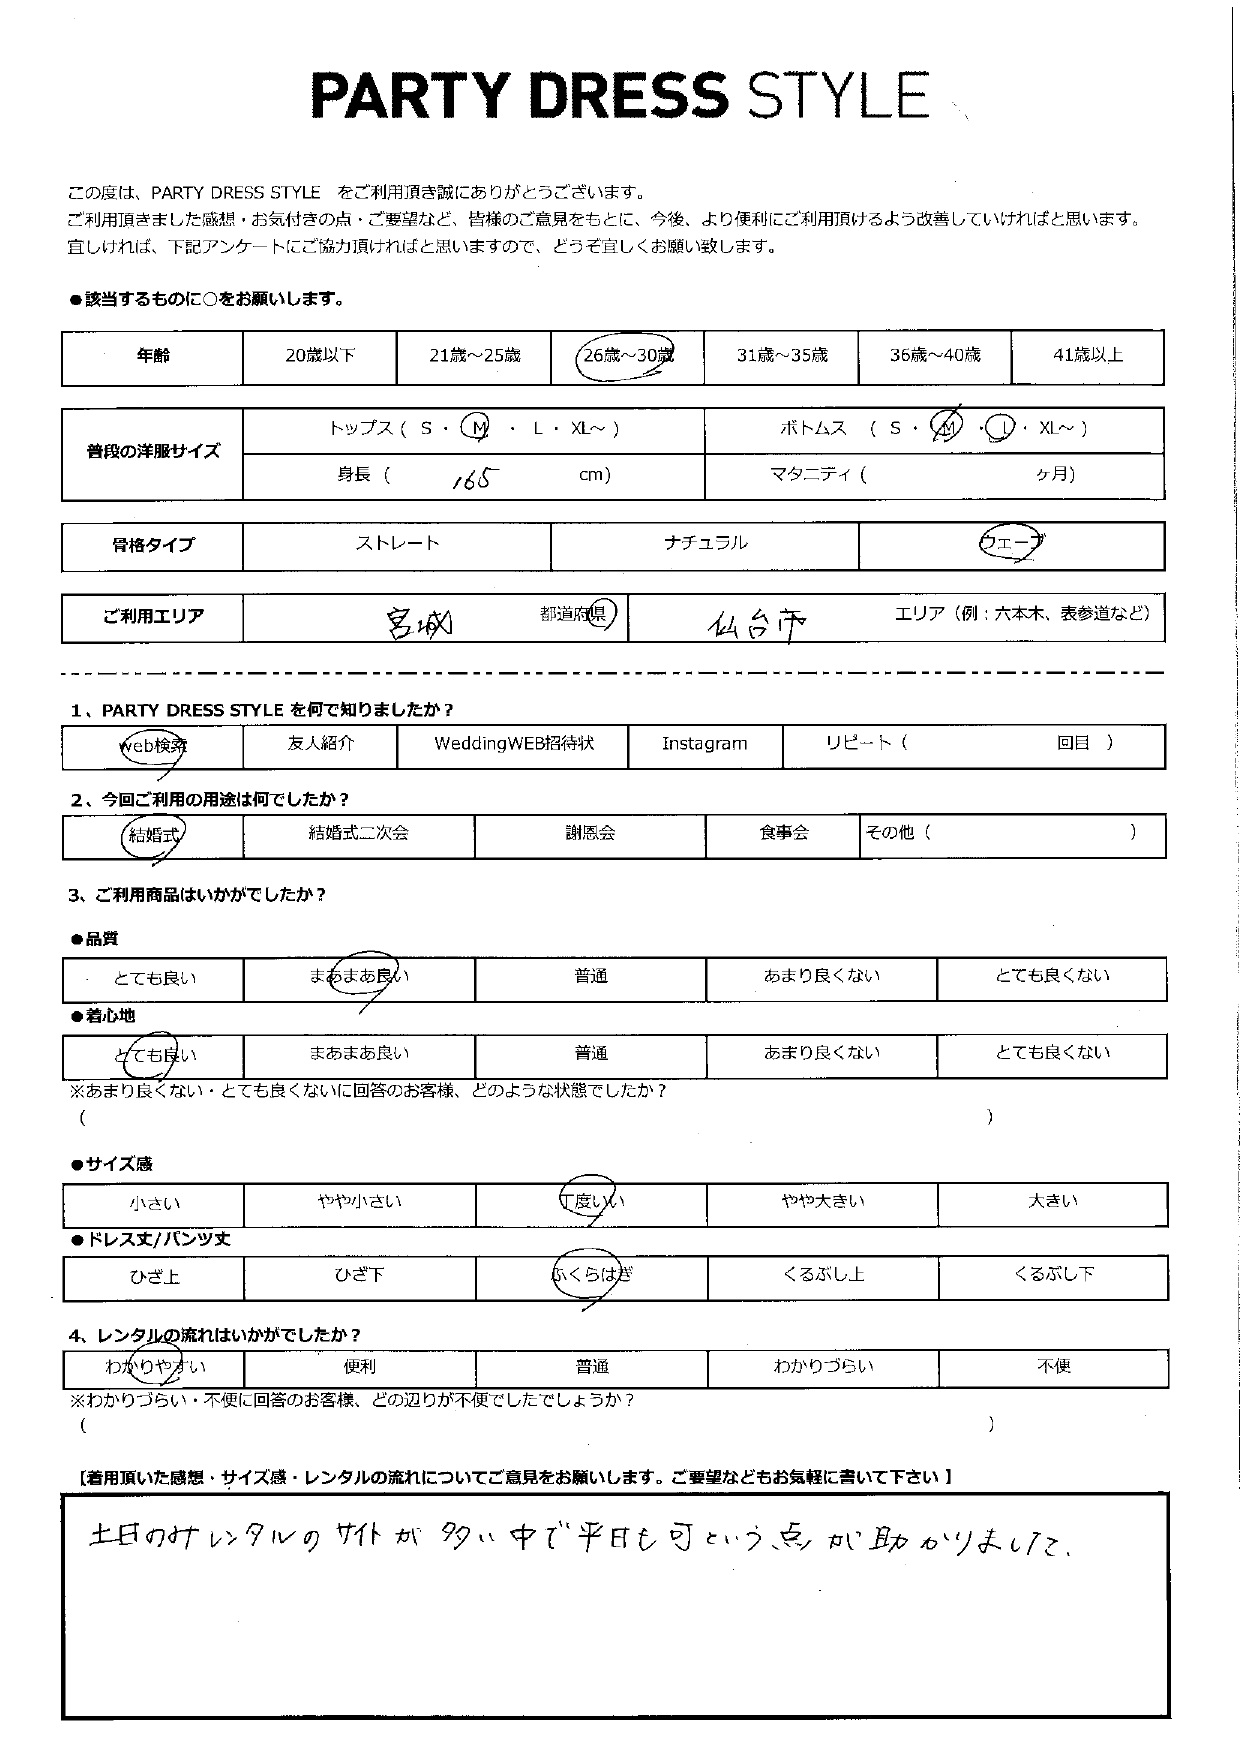 PARTY DRESS STYLE
この度は、PARTY DRESS STYLE をご利用頂き誠にありがとうございます。
ご利用頂きました感想・お気付きの点・ご要望など、皆様のご意見をもとに、今後、より便利にご利用頂けるよう改善していければと思います。
宜しければ、下記アンケートにご協力頂ければと思いますので、どうぞ宜しくお願い致します。
●該当するものに○をお願いします。
年齢 20歳以下 21歳～25歳 26歳～30歳 31歳～35歳 36歳～40歳 41歳以上
普段の洋服サイズ トップス ( S ・ M ・ L ・ XL～ ) ボトムス ( S ・ M ・ L ・ XL～ )
身長 ( 165 cm) マタニティ ( ヶ月)
骨格タイプ ストレート ナチュラル ウェーブ
ご利用エリア 宮城 都道府県 仙台市 エリア（例：六本木、表参道など）
1、PARTY DRESS STYLE を何で知りましたか？
web検索 友人紹介 WeddingWEB招待状 Instagram リピート ( 回目 )
2、今回ご利用の用途は何でしたか？
結婚式 結婚式二次会 謝恩会 食事会 その他 ( )
3、ご利用商品はいかがでしたか？
●品質
とても良い まあまあ良い 普通 あまり良くない とても良くない
●着心地
とても良い まあまあ良い 普通 あまり良くない とても良くない
※あまり良くない・とても良くないに回答のお客様、どのような状態でしたか？
( )
●サイズ感
小さい やや小さい 丁度いい やや大きい 大きい
●ドレス丈/パンツ丈
ひざ上 ひざ下 ふくらはぎ くるぶし上 くるぶし下
4、レンタルの流れはいかがでしたか？
わかりやすい 便利 普通 わかりづらい 不便
※わかりづらい・不便に回答のお客様、どの辺りが不便でしたでしょうか？
( )
【着用頂いた感想・サイズ感・レンタルの流れについてご意見をお願いします。ご要望などもお気軽に書いて下さい】
土日のみレンタルのサイトが多い中で平日も可という点が助かりました.